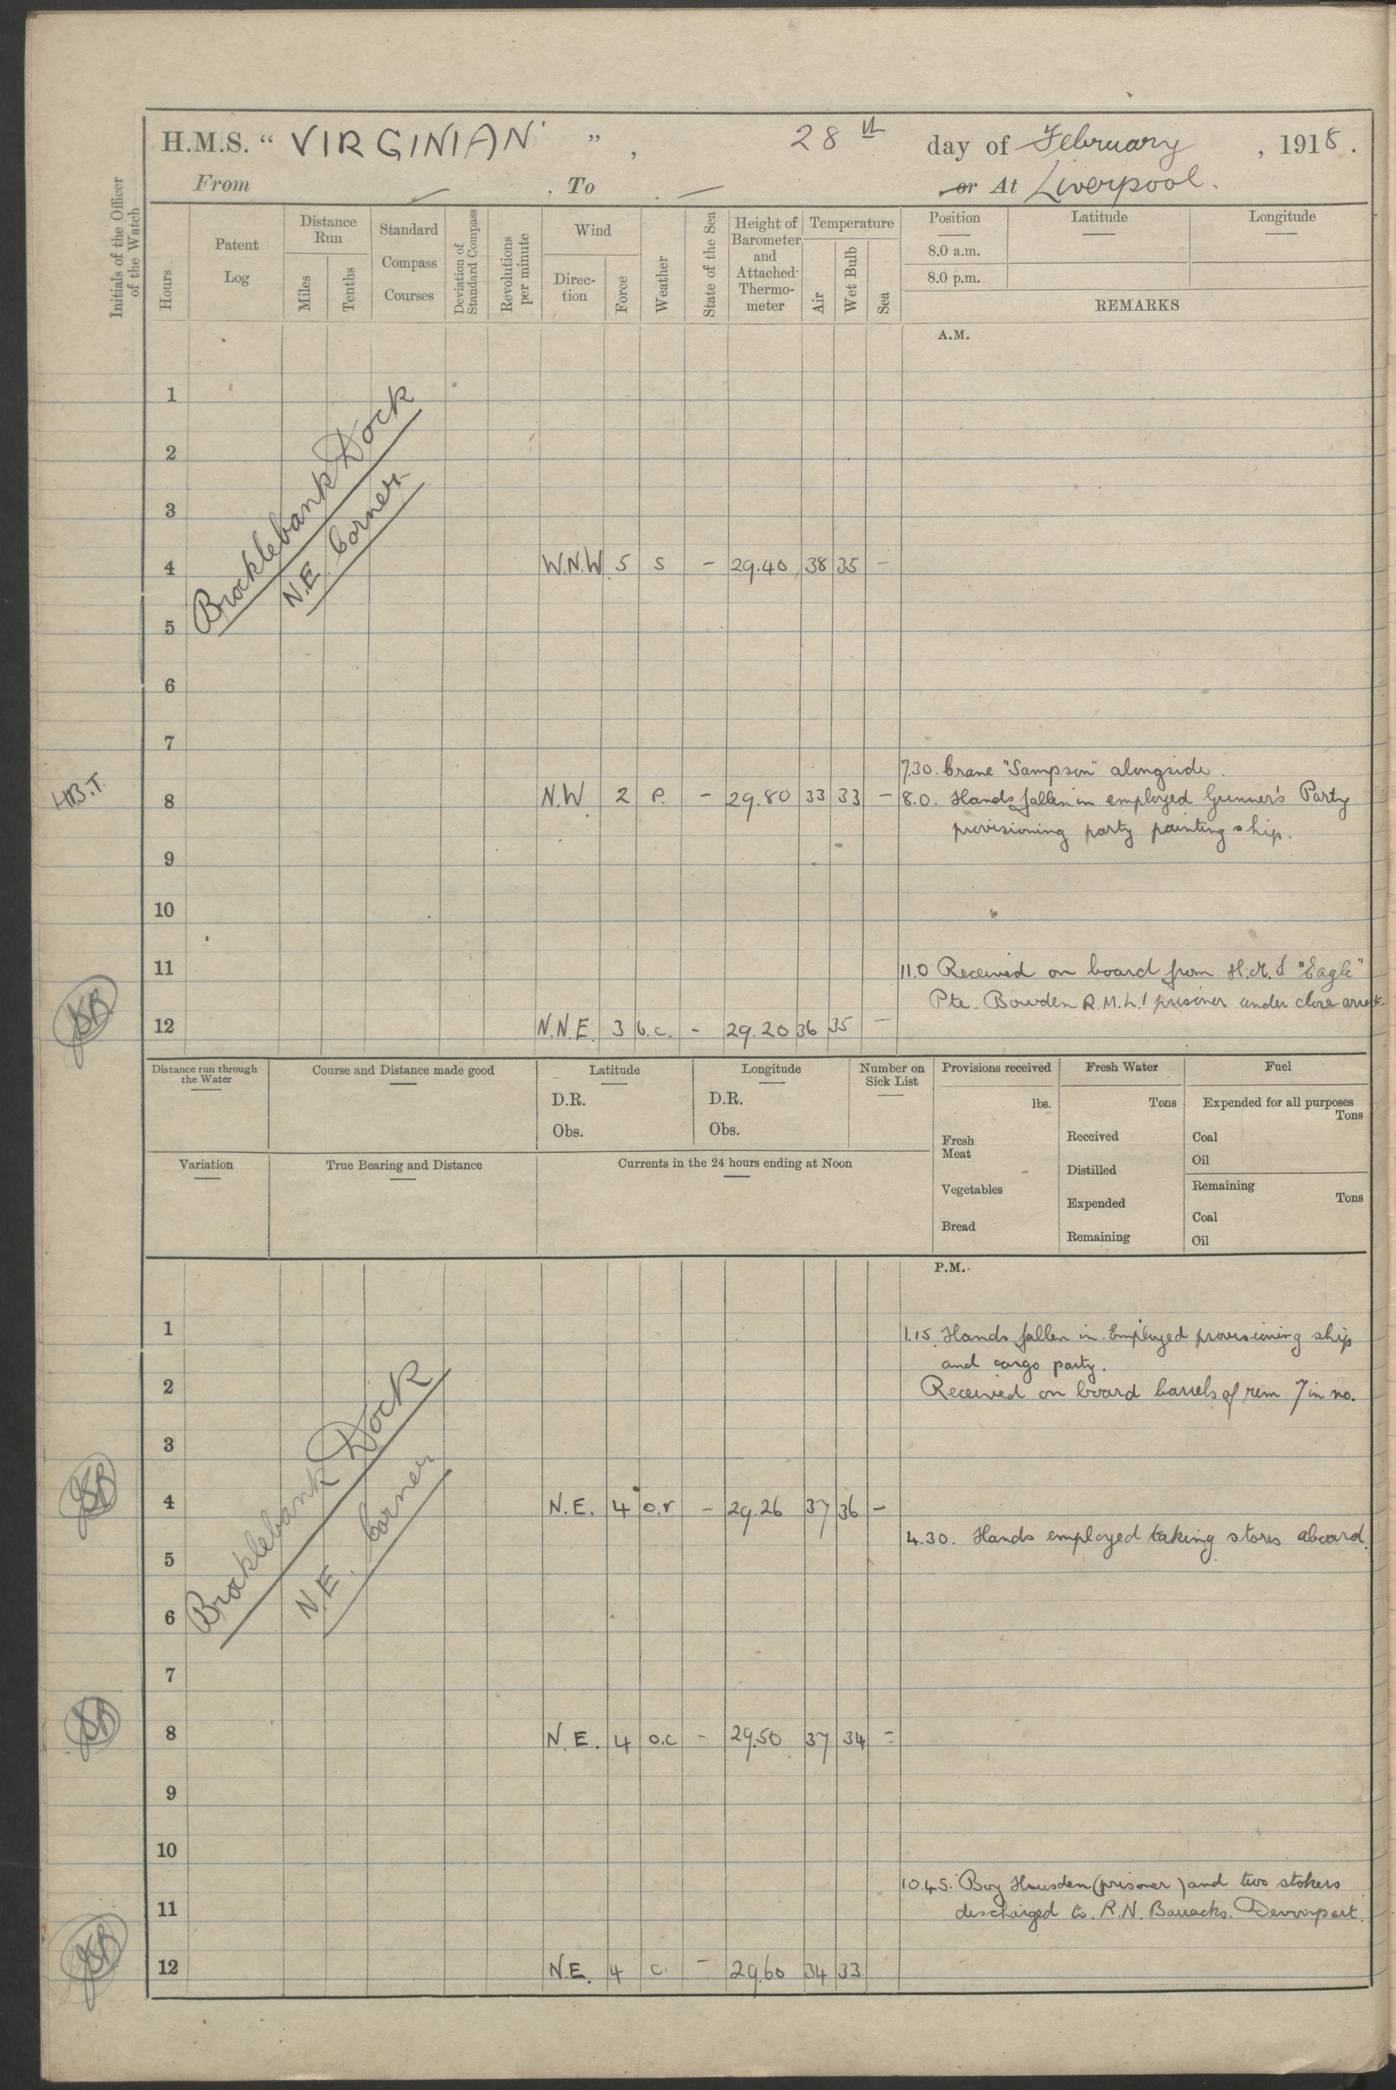 H.M.S. "VIRGINIAN", 28th day of February, 1918.
From — . To . — or At Liverpool.
Initials of the Officer of the Watch
Hours
Patent Log
Distance Run
Miles
Tenths
Standard Compass Courses
Deviation of Standard Compass
Revolutions per minute
Wind
Direc-tion
Force
Weather
State of the Sea
Height of Barometer and Attached Thermo-meter
Temperature
Air
Wet Bulb
Sea
Position
Latitude
Longitude
8.0 a.m.
8.0 p.m.
REMARKS
A.M.
1
Brocklebank Dock
N.E. Corner
2
3
4 W.N.W 5 s - 29.40 38 35 -
5
6
7
7.30. Crane "Sampson" alongside.
H.B.T. 8 N.W 2 P. - 29.80 33 33 - 8.0. Hands fallen in employed Gunner's Party
provisioning party painting ship.
9
10
11 11.0 Received on board from H.M.S "Eagle"
Pte. Bowden R.M.L.I prisoner under close arrest.
12 N.N.E. 3 b.c. - 29.20 36 35 -
Distance run through the Water
Course and Distance made good
Latitude
D.R.
Obs.
Longitude
D.R.
Obs.
Number on Sick List
Provisions received
lbs.
Fresh Meat
Vegetables
Bread
Fresh Water
Tons
Received
Distilled
Expended
Remaining
Fuel
Expended for all purposes
Tons
Coal
Oil
Remaining
Tons
Coal
Oil
Variation
True Bearing and Distance
Currents in the 24 hours ending at Noon
P.M.
1 1.15. Hands fallen in. Employed provisioning ship
and cargo party.
2 Received on board barrels of rum 7 in no.
Brocklebank Dock
N.E. Corner
3
4 N.E. 4 o.r - 29.26 37 36 -
4.30. Hands employed taking stores aboard.
5
6
7
8 N.E. 4 o.c - 29.50 37 34 -
9
10
10.45. Boy Housden (prisoner) and two stokers
11 discharged to R.N. Barracks. Devonport.
12 N.E. 4 c. - 29.60 34 33